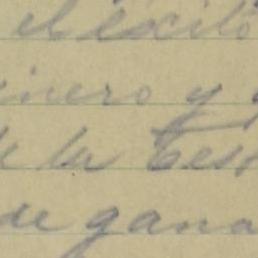 el éxito
inero y
de la Tes
de gana